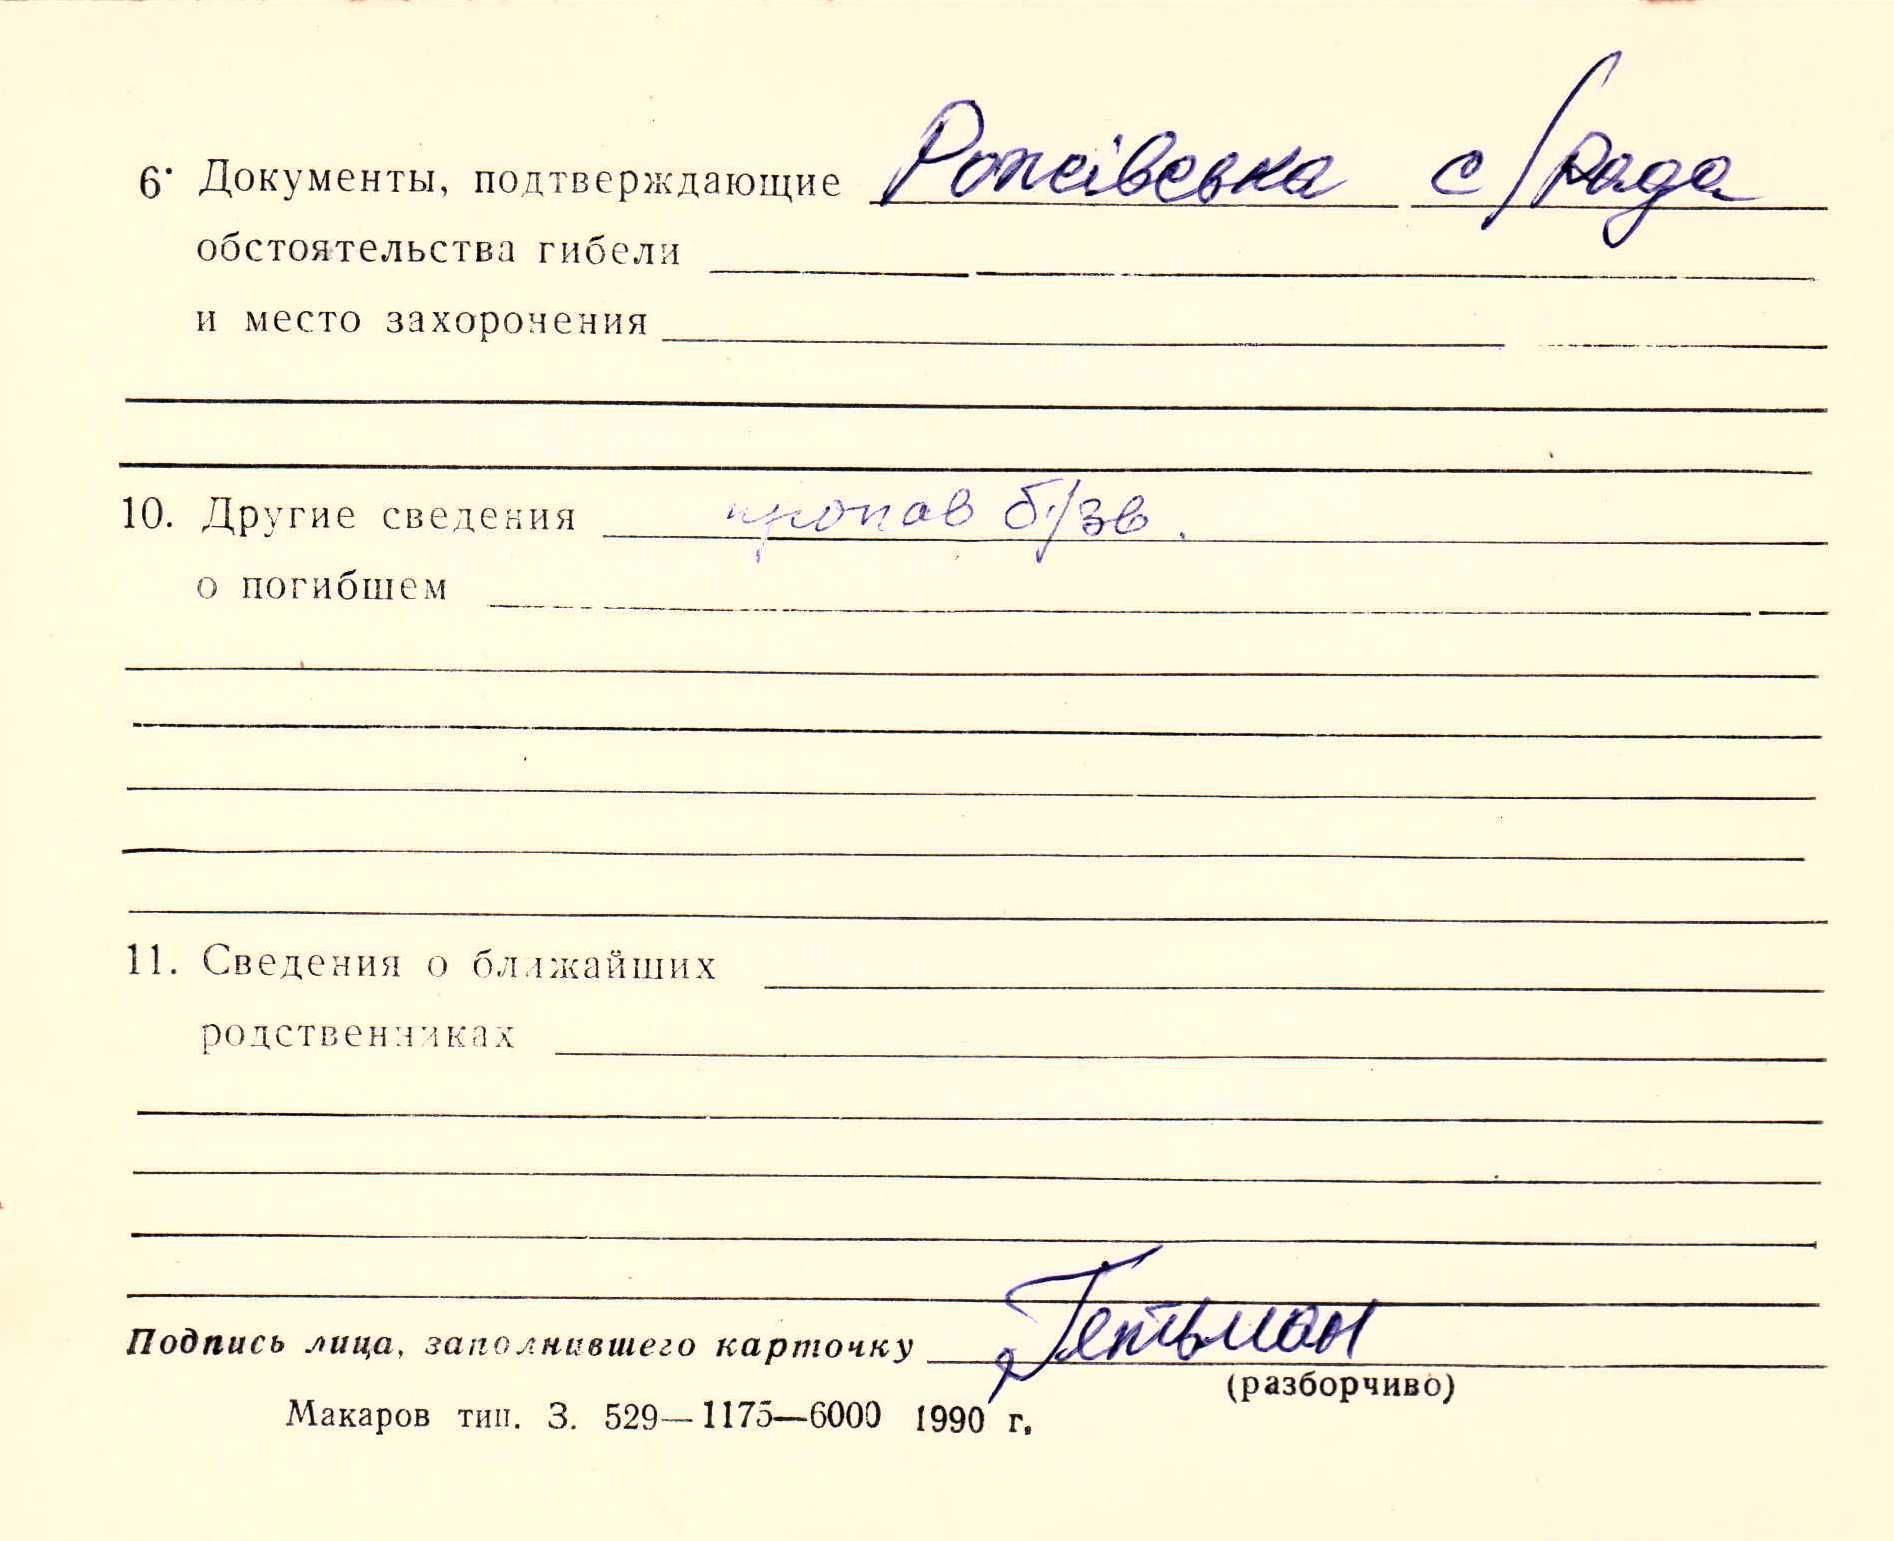 6· Документы, подтверждающие Рожівська с/рада
обстоятельства гибели
и место захоронения
10. Другие сведения пропав б/зв.
о погибшем
11. Сведения о ближайших
родственниках
Подпись лица, заполнившего карточку Гетьман
(разборчиво)
Макаров тип. З. 529—1175—6000 1990 г.